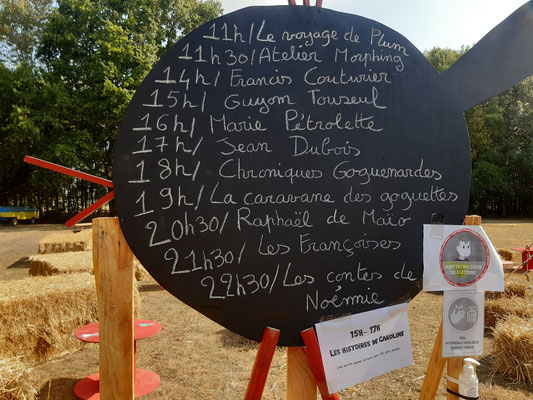 11h/Le voyage de Plum
11h30/Atelier Morphing
14h/Francis Couturier
15h/ Guyom Touseul
16h/ Marie Pétrolette
17h/ Jean Dubois
18h/ Chroniques Goguenardes
19h/La caravane des goguettes
20h30/Raphaël de Maïo
21h30/ Les Françoises
22h30/Les contes de
Noémie
15H - 17H
LES HISTOIRES DE CAROLINE
PORT DU MASQUE
OBLIGATOIRE
GEL
HYDROALCOOLIQUE
SERVEZ-VOUS